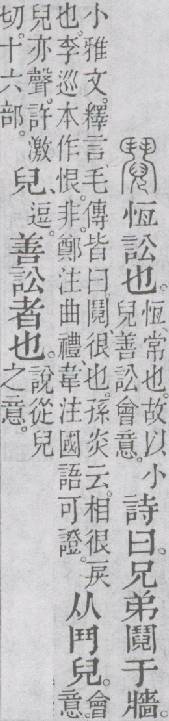 鬩恆訟也。恆常也。故以小兒善訟會意。詩曰。兄弟鬩于牆。
小雅文。釋言毛傳皆曰鬩很也。孫炎云。相很戾也。李巡本作恨。非。鄭注曲禮韋注國語可證。从鬥兒。會意。
兒亦聲。許激切。十六部。兒、逗。善訟者也。說從兒之意。